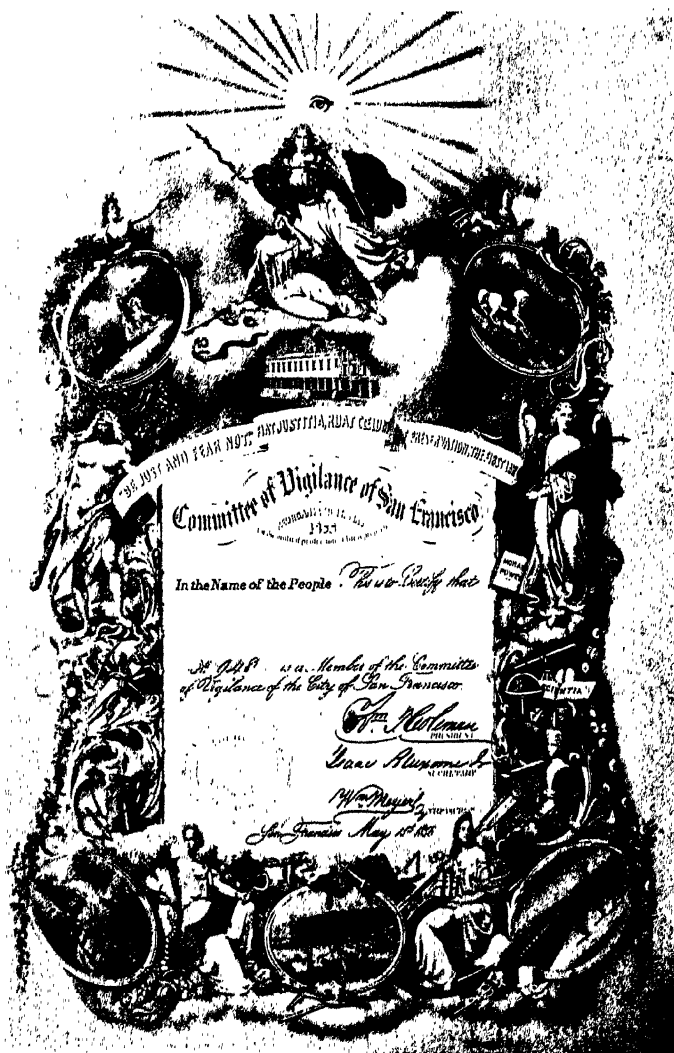 "BE JUST AND FEAR NOT." FIAT JUSTITIA, RUAT CŒLUM PRESERVATION, THE FIRST LAW
Committee of Vigilance of San Francisco
In the Name of the People This is to Certify that
No 948 is a Member of the Committee
of Vigilance of the City of San Francisco.
MORAL
POWER
Wm T Coleman
PRESIDENT
Isaac Bluxome Jr
SECRETARY
Wm Meyer
San Francisco May 15th